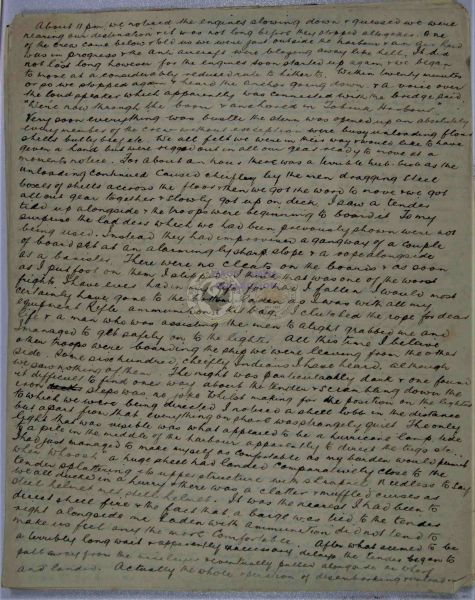 About 11 pm we noticed the engines slowing down & guessed we were
nearing our destination & it was not long before they stopped altogether. One
of the crew came below & told us we were just outside the harbour & an air raid
was in progress & the anti aircraft were belaying away like hell. It did
not last long however for the engines soon started up again & we began
to move at a considerably reduced rate to hitherto. Within twenty minutes
or so we stopped again & heard the anchor going down & a voice over
the loud speaker which apparently was connected with the bridge said
"We're now through the boom & anchored in Tobruk Harbour"
Very soon everything was bustle the alarm was opened up an absolutely
every member of the crew without exception were busy unloading
shells butter they etc. We did feel we were in their way & would like to have
given a hand but were rigged out in all our gear ready to move at a
moments notice. For about an hour there was a terrible hub-bub as the
unloading continued caused chiefly by the men dragging steel
boxes of shells across the floor & then we got the word to move & we got
all our gear together & slowly got up on deck. I saw a tender
tied up alongside & the troops were beginning to board it. To my
surprise the ladders which we had been previously shown were not
being used. Instead they had improvised a gangway of a couple
of boards set at an alarming sharp slope & a rope alongside
as a banister. There were no cleats on the boards & as soon
as I put foot on them I slipped & I think that was one of the worst
frights I have ever had in my life for had I fallen I would most
certainly have gone to the bottom laden as I was with all my
equipment Rifle ammunition kit bag. I clutched the rope for dear
life & a man who was assisting the men to alight grabbed me and
managed to get safely on to the lighter. All this time I believe
other troops were boarding the ship we were leaving from the other
side. Some six hundred, chiefly Indians I have heard, although
we saw nothing of them. The night was particularly dark & one found
it difficult to find ones way about the tender & clambering down the
iron steps was no joke. Whilst making for the position on the lighter
to which we were being directed I noticed a shell lobb in the distance
but apart from that everything on shore was strangely quiet. The only
light that was visible was what appeared to be a hurricane lamp
of a pile in the middle of the harbour apparently to direct the tugs etc.
I had just managed to make myself as comfortable as my burden would permit
when whoosh a huge shell had landed comparatively close to the
tender splattering its superstructure with shrapnel. Needless to say
we all ducked in a hurry & there was a clatter & muffled curses as
steel helmet met steel helmet. It was the nearest I had been to
direct shell fire & the fact that a barge was tied to the tender
right alongside me laden with ammunition did not tend to
make us feel any the more comfortable. After what seemed to be
a terribly long wait & apparently unnecessary delay the tender began to
pull away from the & eventually pulled alongside a wharf
and landed. Actually the whole operation of disembarking